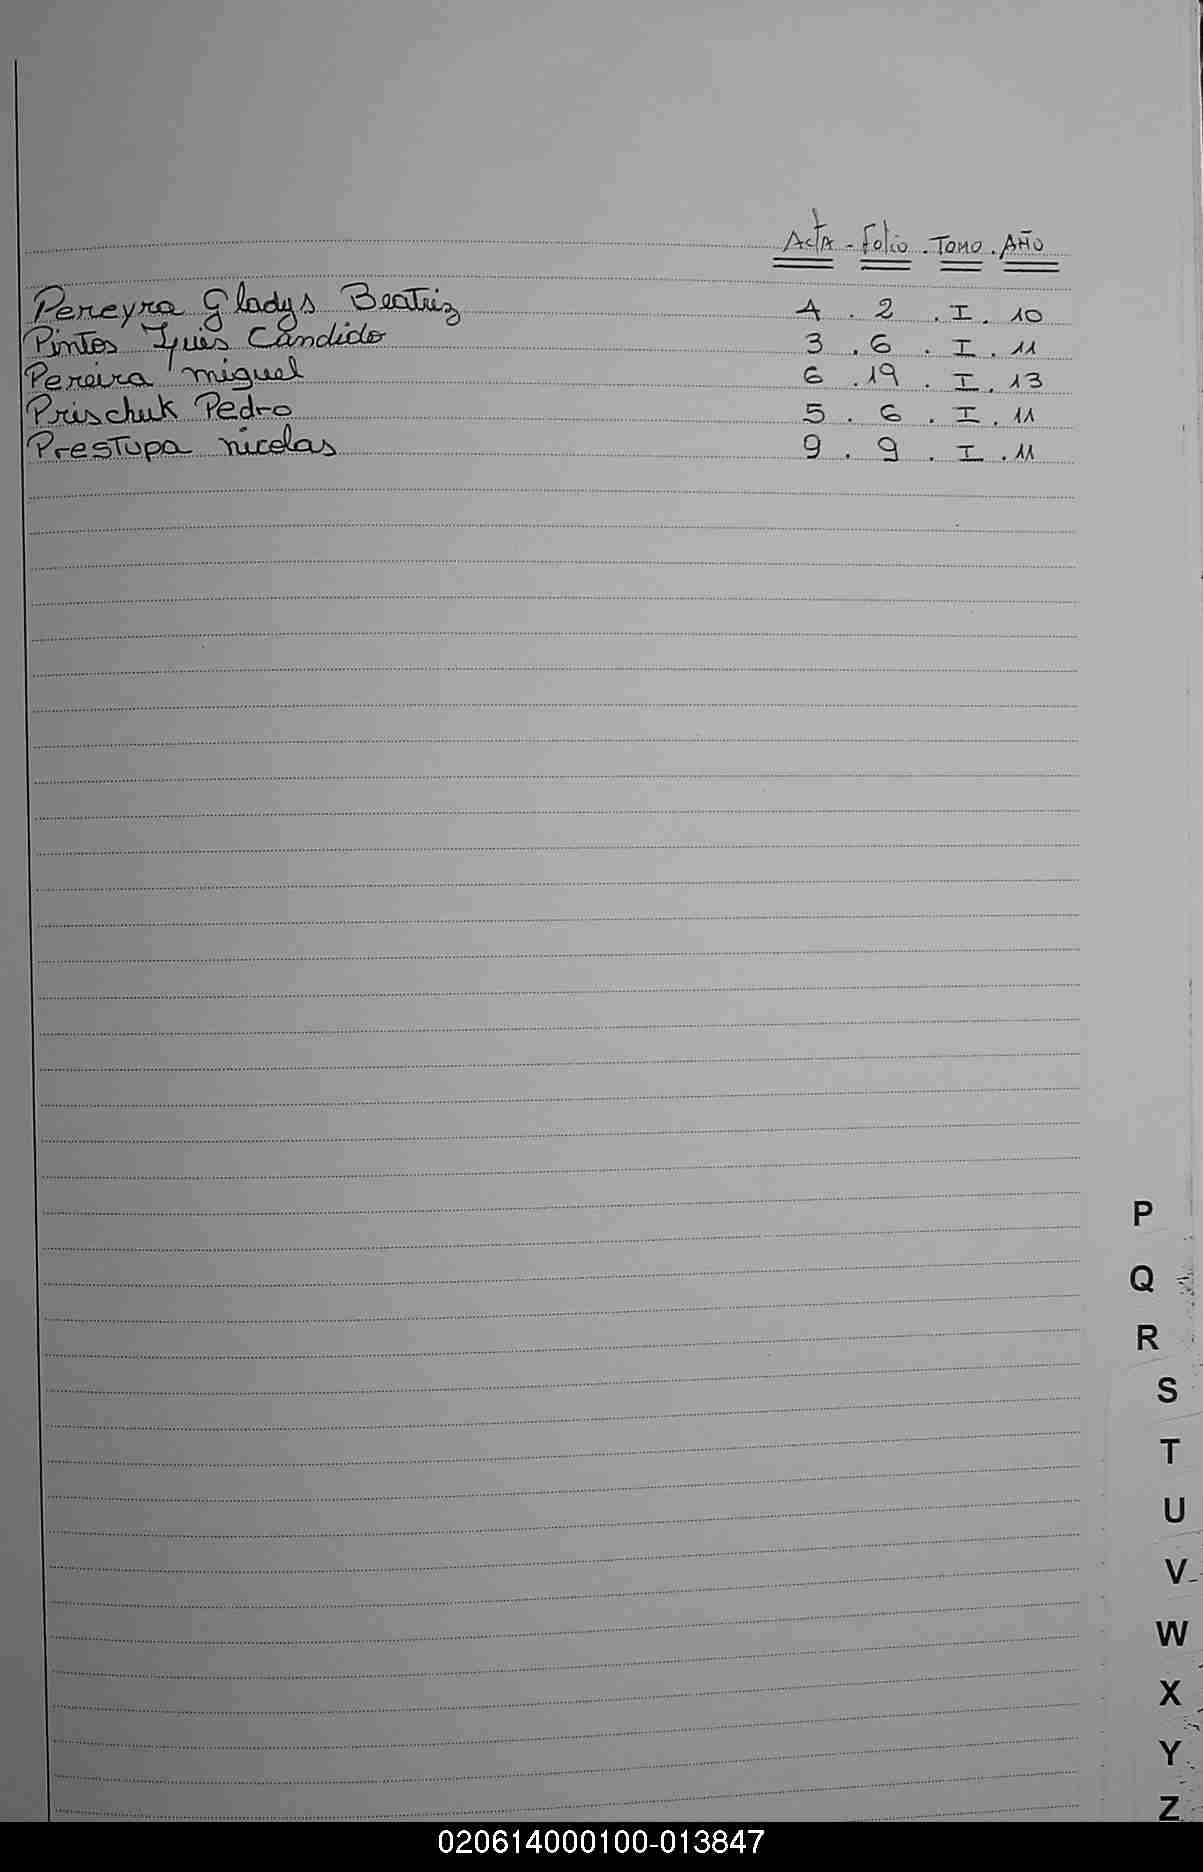 Acta - Folio . Tomo . Año
Pereyra Gladys Beatriz 4 . 2 . I . 10
Pintos Luis Candido 3 . 6 . I . 11
Pereira miguel 6 . 19 . I . 13
Prischuk Pedro 5 . 6 . I . 11
Prestupa nicolas 9 . 9 . I . 11
P
Q
R
S
T
U
V
W
X
Y
Z
020614000100-013847